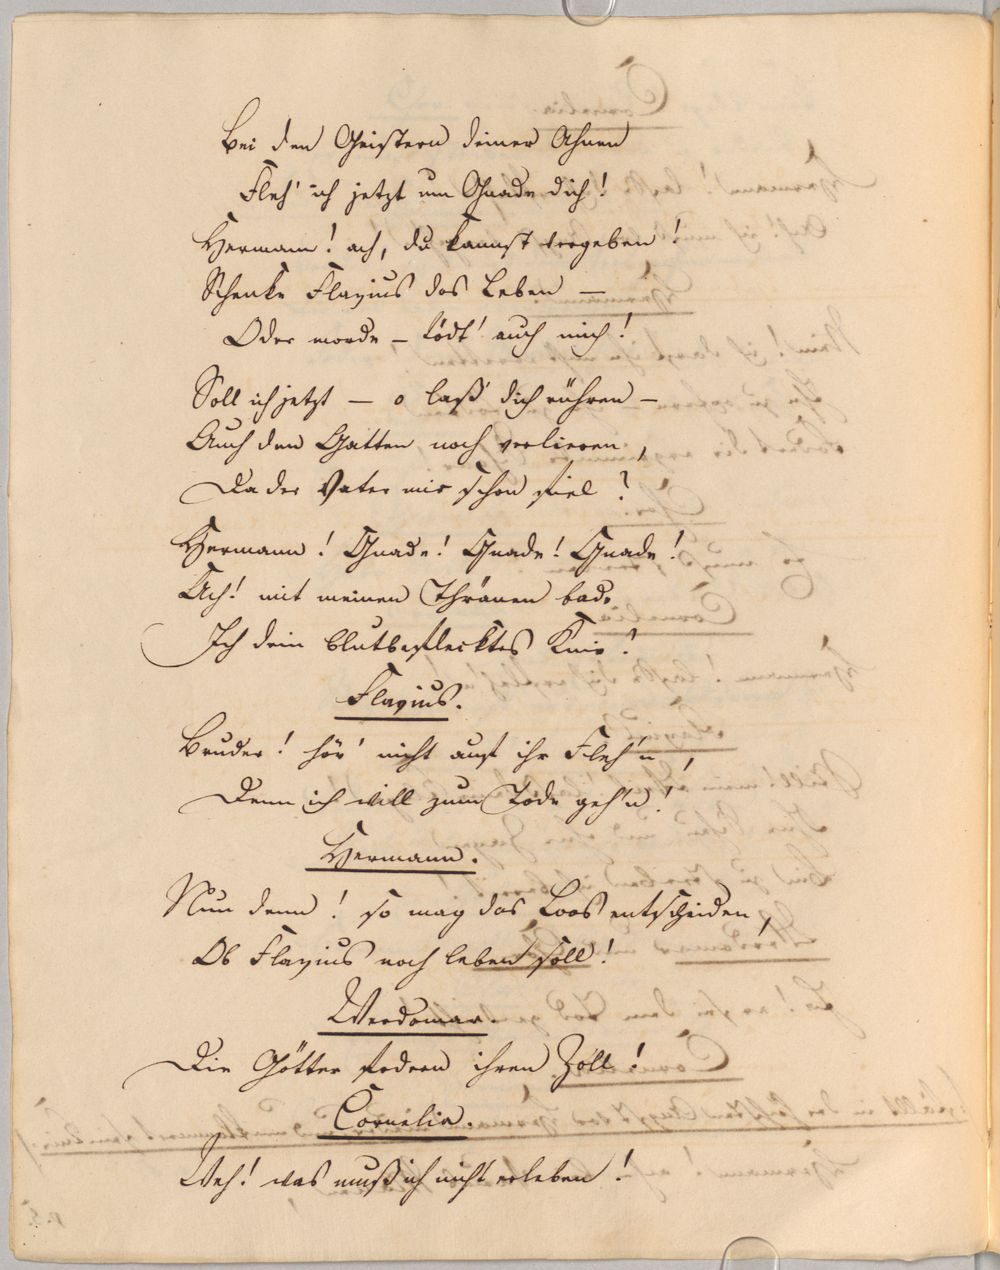 Bei den Geistern deiner Ahnen
Fleh' ich jetzt um Gnade dich!
Hermann! ach, du kannst vergeben!
Schenke Flavius das Leben —
Oder morde – tödt' auch mich!
Soll ich jetzt — o laß' dich rühren –
Auch den Gatten noch verlieren,
Da der Vater mir schon fiel?
Hermann! Gnade! Gnade! Gnade!
Ach! mit meinen Thränen bade
Ich dein blutbeflecktes Knie!
Flavius.
Bruder! hör' nicht auf ihr Fleh'n,
Denn ich will zum Tode geh'n!
Hermann.
Nun denn! so mag das Loos entscheiden,
Ob Flavius noch leben soll!
Werdomar.
Die Götter fodern ihren Zoll!
Cornelia.
Weh! was muß ich nicht erleben!